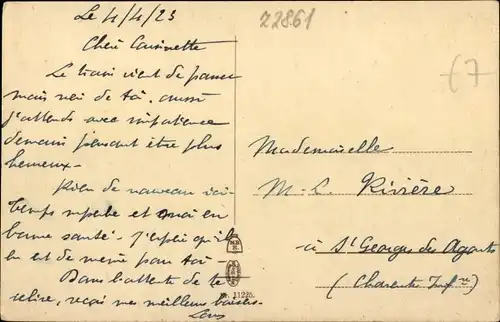 22861
67
Le 4/4/23
Chère Cousinette
Le train vient de passer
mais rien de toi. aussi
j'attends avec impatience
demain pensant être plus
heureux -
Rien de nouveau ici
temps superbe et moi en
bonne santé - J'espère qu'il
en est de même pour toi -
Dans l'attente de te
relire, reçois mes meilleurs baisers -
Mademoiselle
M-L. Rivière
à St Georges des Agouts
(Charente Infre)
11225.